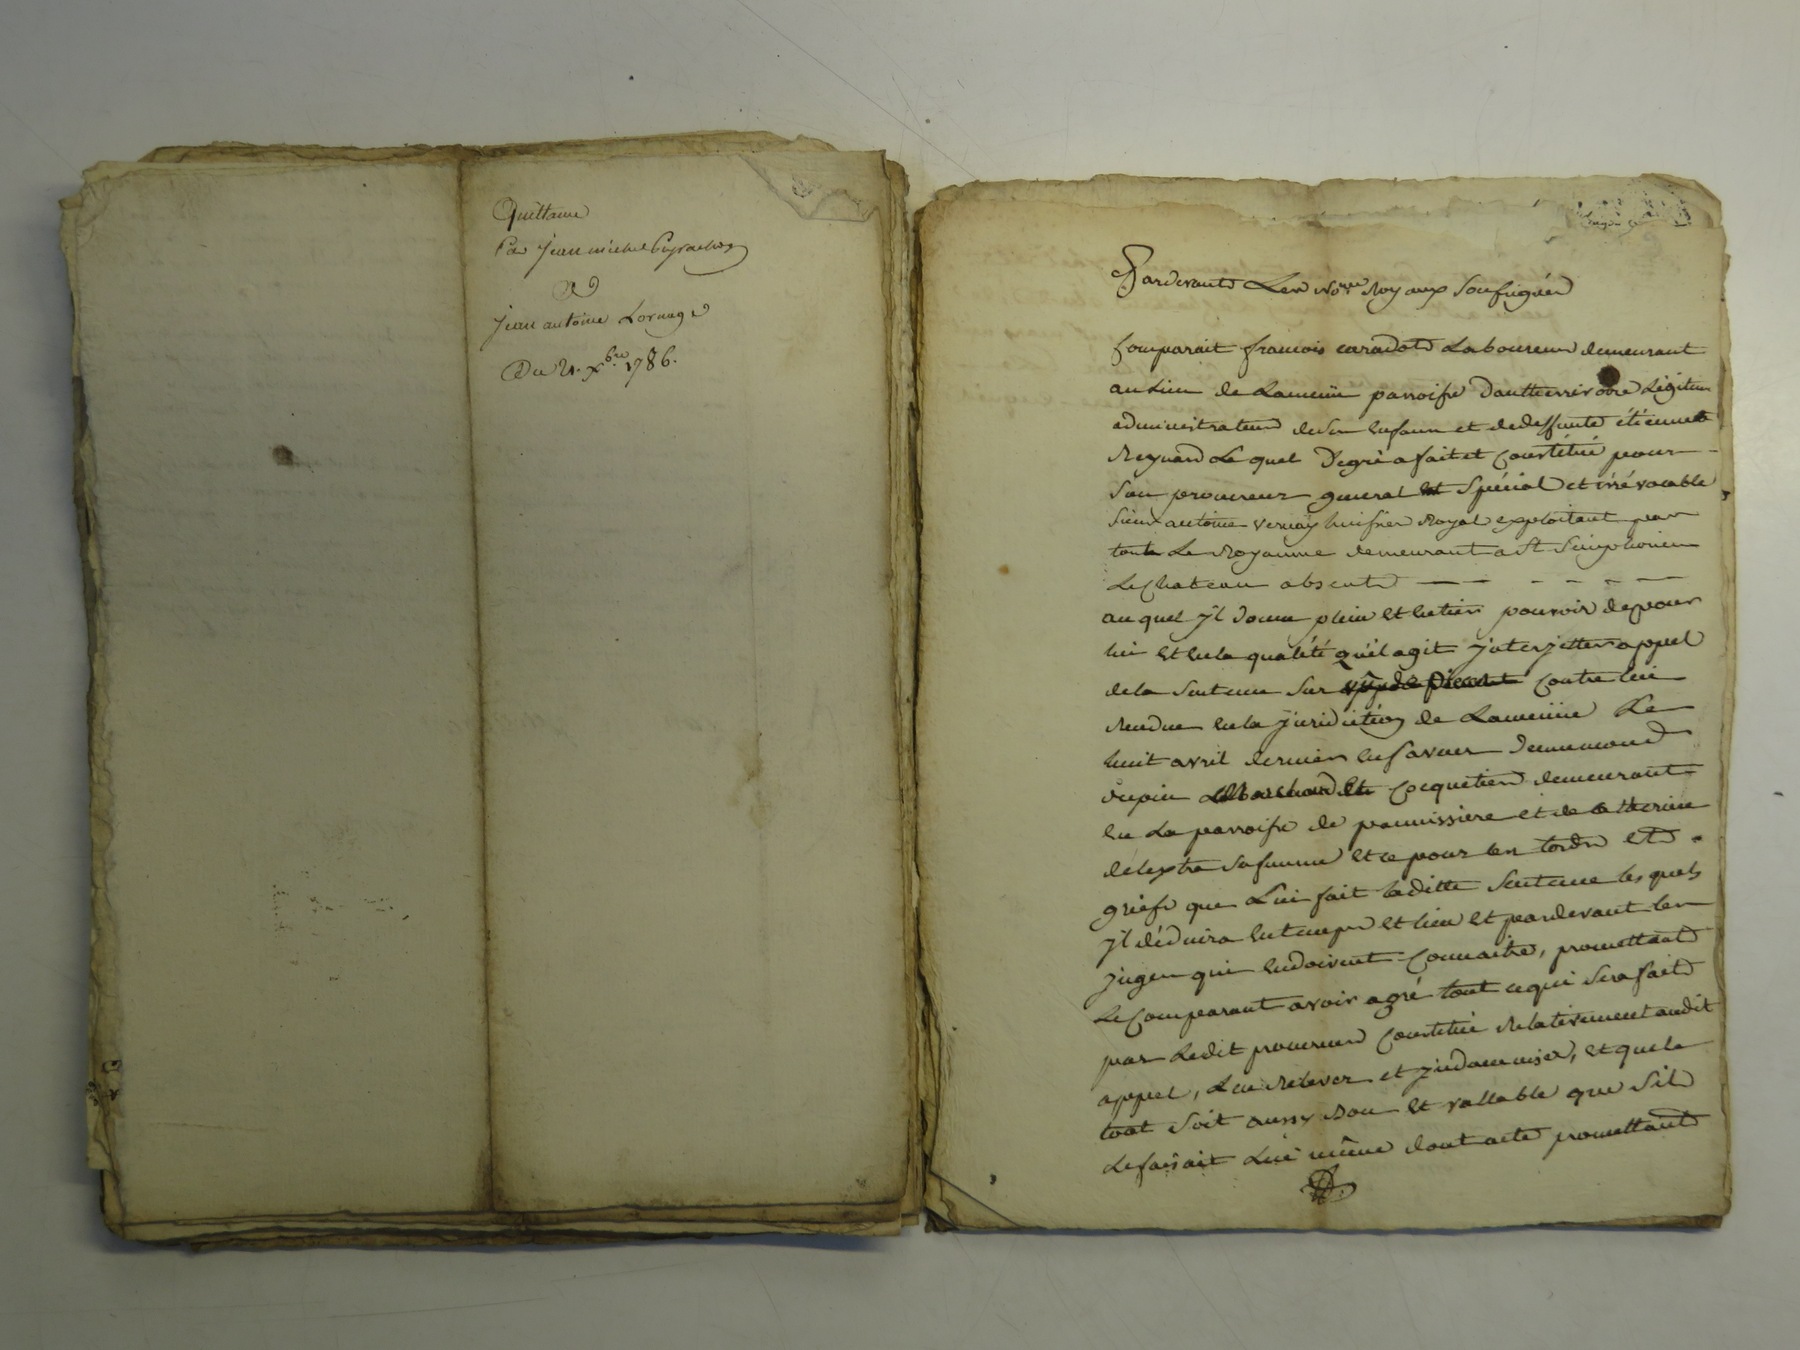 Quittance
Par Jean michel
A
Jean antoine Lornage
Du 21. Xbre 1786.
Pardevant Les Nores Royaux Soussignés
Comparait francois caradot Laboureur demeurant
au Lieu de Lameure parroisse Dautterrivoire Légitime
administrateur de ses Enfans et de deffunte étiennete
Reynard Le quel Degré a fait et Constitué pour
Son procureur general et Spécial et irrévocable
Sieur antoine vernay huissier Royal exploitant par
tout Le Royaume demeurant a St Simphorien
Le Chateau absent
au quel yl donne plein Et Entier pouvoir de pour
lui Et En la qualité qu'il agit ynterjetter appel
de la Sentence Sur contre lui
Rendue En la juridiction de Lameure Le
huit avril dernier En faveur
dupin cocquetier demeurant
En La parroisse de pannissiere et de Catherine
sa femme Et ce pour les tords Et
griefs que Lui fait laditte Sentence les quels
yl déduira En temps Et lieu Et pardevant les
juges qui En doivent Connaitre, promettant
Le Comparant avoir agré tout ce qui Sera fait
par Ledit procureur Constitué Relativement audit
appel, L'en Relever et yndamniser, Et que le
tout Soit aussy Bon Et vallable que Sil
Le faisait Lui même dont acte promettant